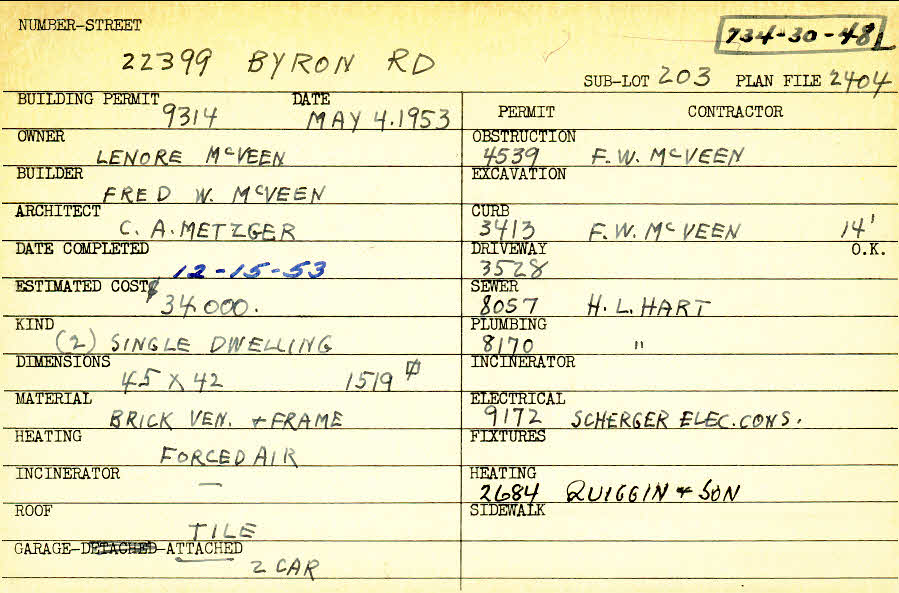 NUMBER-STREET
734-30-48L
22399 BYRON RD
SUB-LOT 203 PLAN FILE 2404
BUILDING PERMIT DATE
9314 MAY 4.1953
PERMIT CONTRACTOR
OWNER
LENORE McVEEN
OBSTRUCTION
4539 F.W. McVEEN
BUILDER
FRED W. McVEEN
EXCAVATION
ARCHITECT
C. A. METZGER
CURB
3413 F.W. McVEEN 14'
DATE COMPLETED
12-15-53
DRIVEWAY O.K.
3528
ESTIMATED COST $
34.000.
SEWER
8057 H.L. HART
KIND
(2) SINGLE DWELLING
PLUMBING
8170 "
DIMENSIONS
45 X 42 1519
INCINERATOR
MATERIAL
BRICK VEN. + FRAME
ELECTRICAL
9172 SCHERGER ELEC. CONS.
HEATING
FORCED AIR
FIXTURES
INCINERATOR
—
HEATING
2684 QUIGGIN + SON
ROOF
TILE
SIDEWALK
GARAGE-DETACHED-ATTACHED
2 CAR